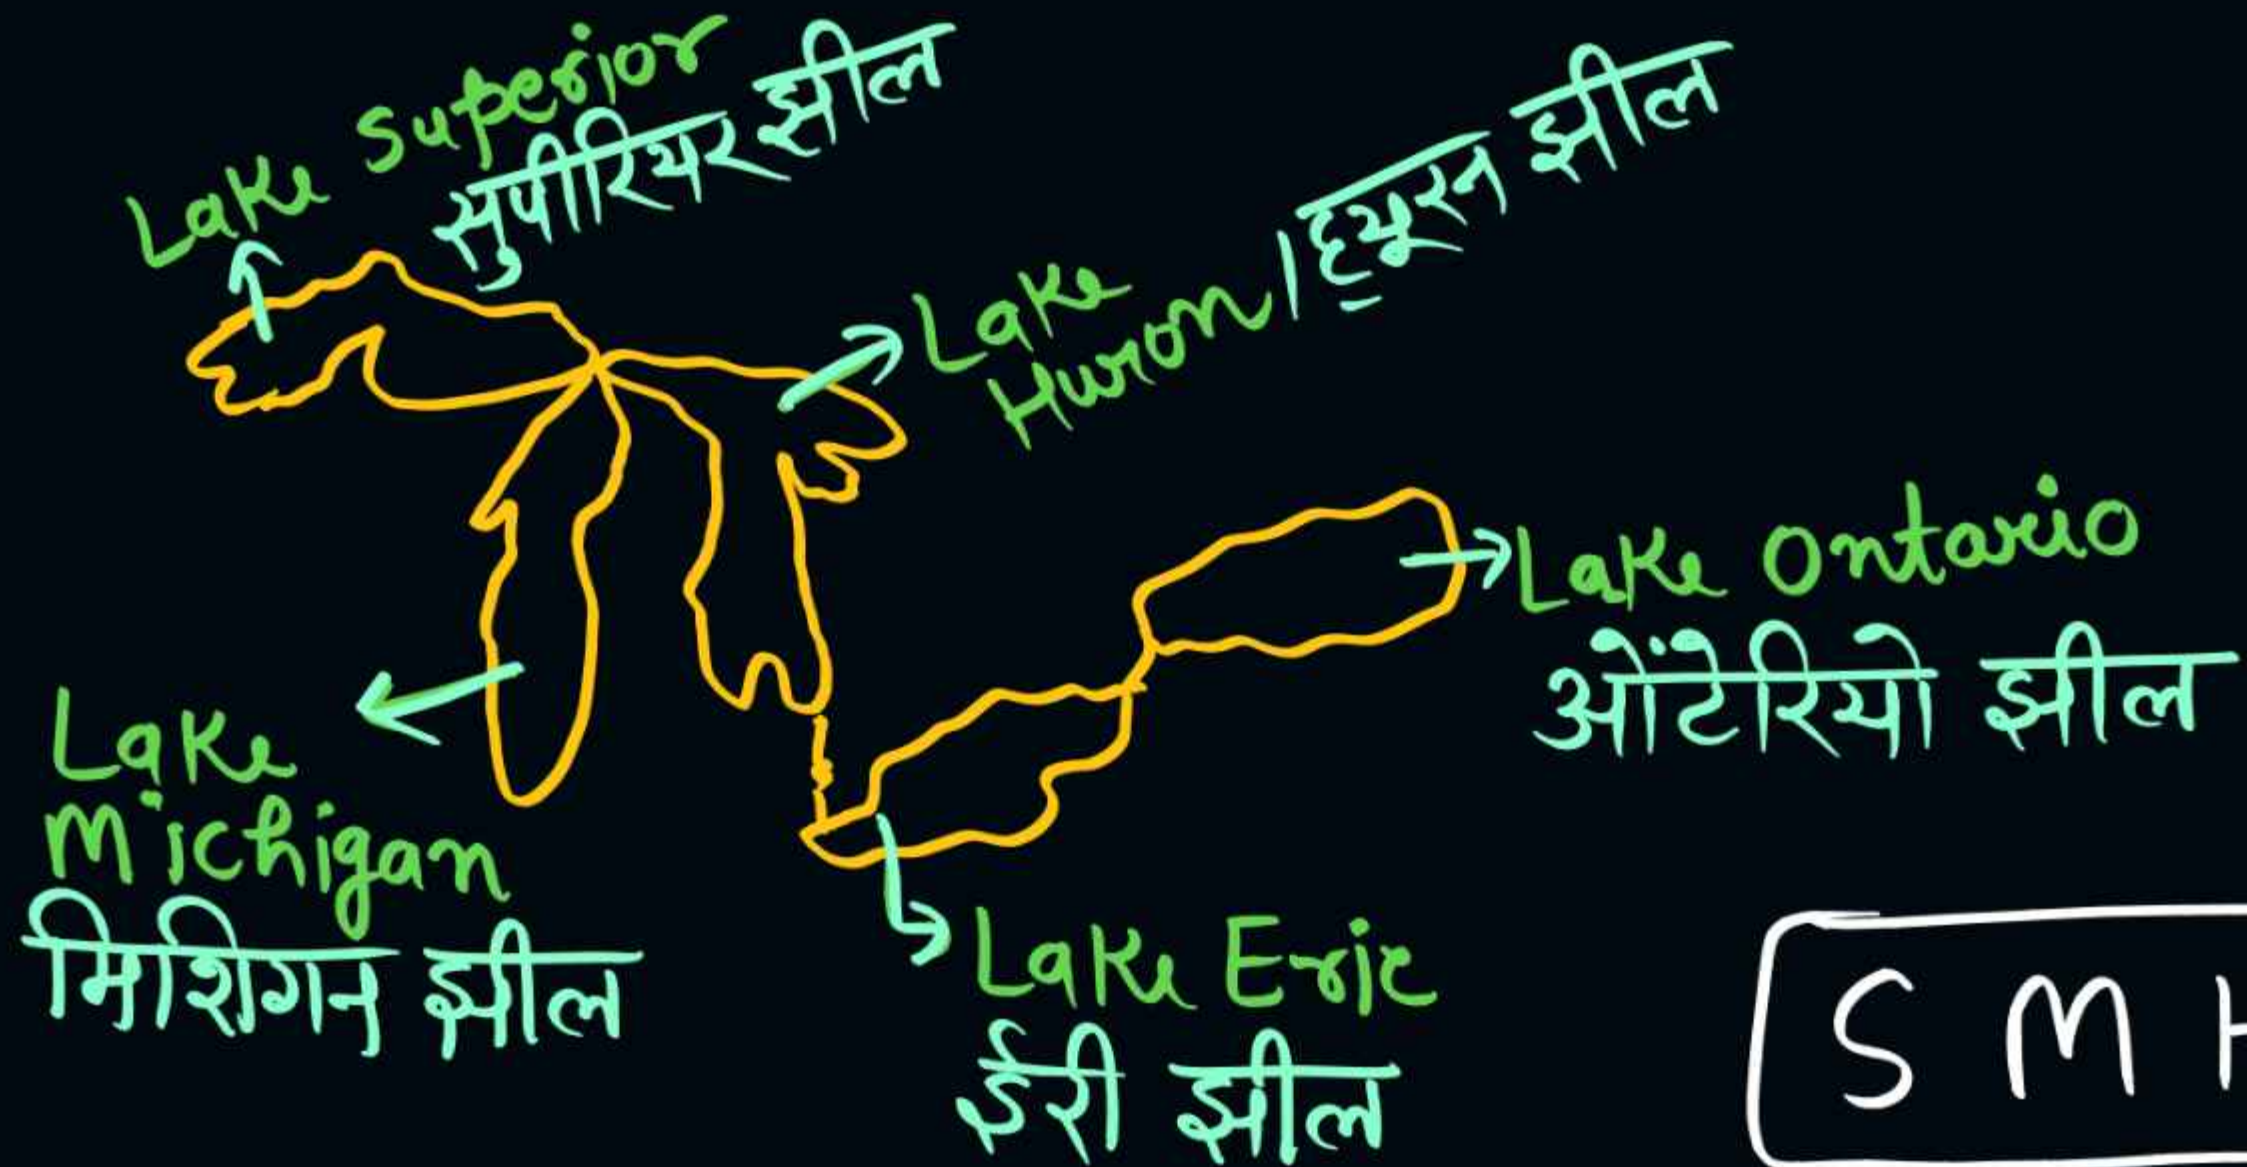 Lake Superior
सुपीरियर झील
Lake
Huron / ह्यूरन झील
Lake Ontario
ओंटेरियो झील
Lake
Michigan
मिशिगन झील
Lake Erie
ईरी झील
S M H